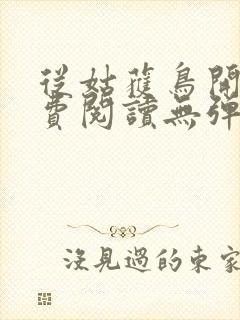 從姑獲鳥開
費閱讀無彈
沒見過的東家